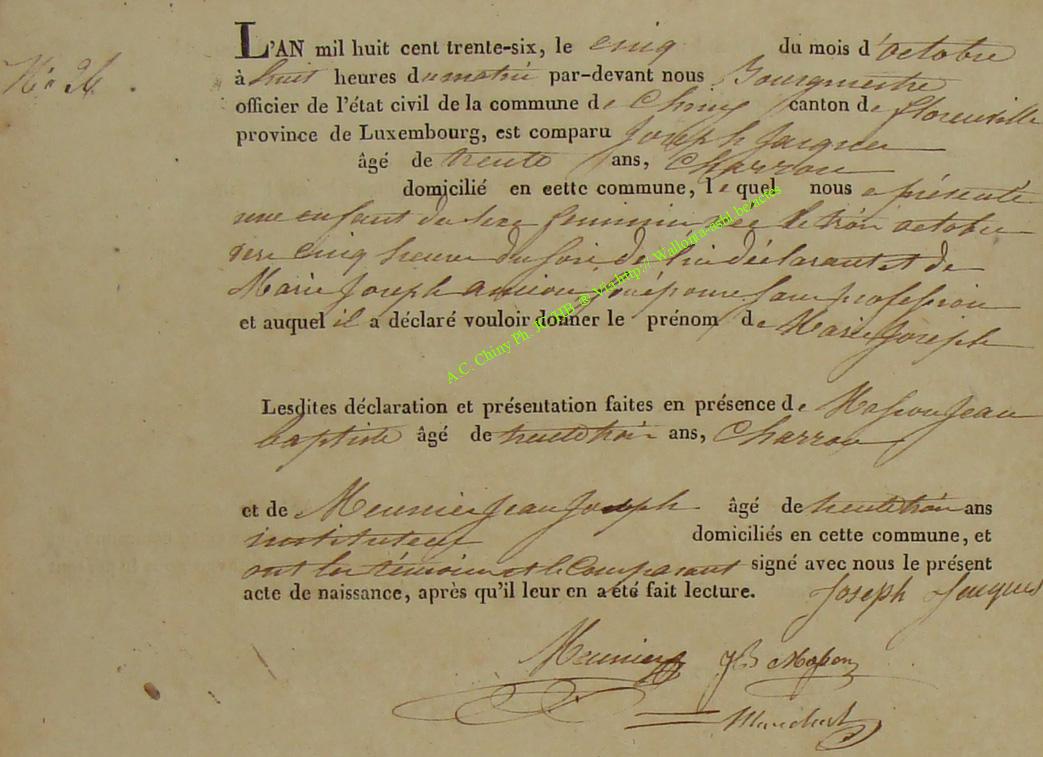 N.o 26.
L'AN mil huit cent trente-six, le cinq du mois d'octobre
à huit heures du matin par-devant nous Bourgmestre
officier de l'état civil de la commune de Chiny canton de florenville
province de Luxembourg, est comparu Joseph Jacques
âgé de trente ans, Charron
domicilié en cette commune, le quel nous a présenté
une enfant du sexe feminin née le trois octobre
vers cinq heures du soir de lui déclarant et de
Marie Joseph son épouse sans profession
et auquel il a déclaré vouloir donner le prénom de Marie Joseph
Lesdites déclaration et présentation faites en présence de Masson Jean
baptiste âgé de trente trois ans, Charron
et de Meunier Jean Joseph âgé de trente trois ans
instituteur domiciliés en cette commune, et
ont les témoins et le Comparant signé avec nous le présent
acte de naissance, après qu'il leur en a été fait lecture. Joseph Jacques
Meunier JB Masson
A.C. Chiny Ph. JC HB ® Via http:// Wallonia-asbl.be/actes